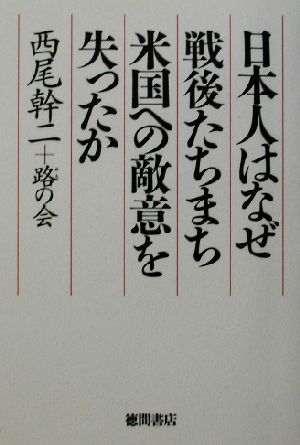 日本人はなぜ
戦後たちまち
米国への敵意を
失ったか
西尾幹二+路の会
みち
徳間書店